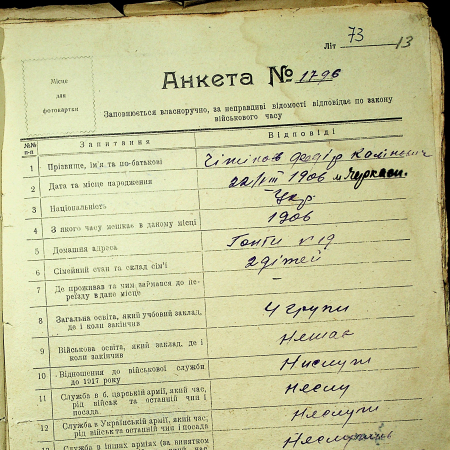 Літ 73
13
Місце
для
фотокартки
Анкета № 1796
Заповнюється власноручно, за неправдиві відомості відповідає по закону
військового часу
№№ п-п Запитання Відповіді
1 Прізвище, ім'я та по-батькові
2 Дата та місце народження 1906 м Черкаси.
3 Національність Укр
4 З якого часу мешкає в даному місці 1906
5 Домашня адреса Гонти № 19
6 Сімейний стан та склад сім'ї 2 дітей
7 Де проживав та чим займався до пе-
реїзду в дане місце –
8 Загальна освіта, який учбовий заклад,
де і коли закінчив 4 групи
9 Військова освіта, який заклад, де і
коли закінчив Немає
10 Відношення до військової служби
до 1917 року
11 Служба в б. царській армії, який час,
рід військ та останній чин і
посада
12 Служба в Українській армії, який час,
рід військ та останній чин і посада
Служба в інших арміях (за винятком